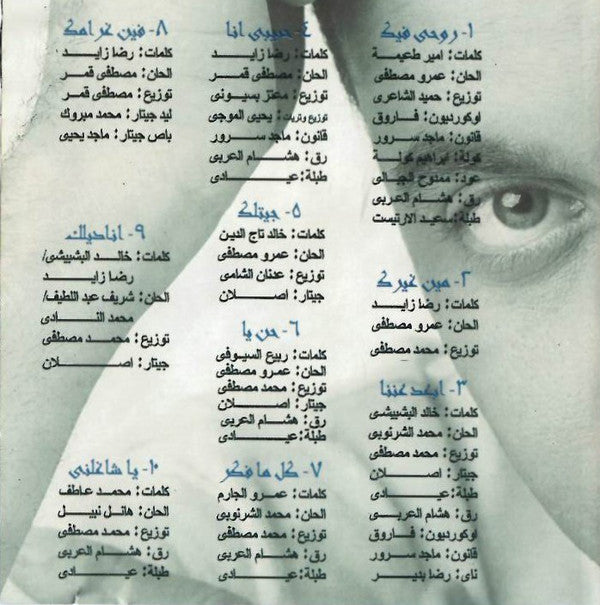 ١- روحى فيك
كلمات: امير طعيمة
الحان: عمرو مصطفى
توزيع: حميد الشاعرى
اوكورديون: فاروق
قانون: ماجد سرور
كولة: ابراهيم كولة
عود: ممدوح الجبالى
رق: هشام العربى
طبلة: سعيد الارتيست
٢- مين غيرك
كلمات: رضا زايد
الحان: عمرو مصطفى
توزيع: محمد مصطفى
٣- ابعد عننا
كلمات: خالد البشبيشى
الحان: محمد الشرنوبى
توزيع: محمد مصطفى
جيتار: اصلان
طبلة: عيادى
رق: هشام العربى
اوكورديون: فاروق
قانون: ماجد سرور
ناى: رضا بدير
٤- حبيبى انا
كلمات: رضا زايد
الحان: مصطفى قمر
توزيع: معتز بسيونى
توزيع وتريات: يحيى الموجى
قانون: ماجد سرور
رق: هشام العربى
طبلة: عيادى
٥- جيتلك
كلمات: خالد تاج الدين
الحان: عمرو مصطفى
توزيع: عدنان الشامى
جيتار: اصلان
٦- حن يا
كلمات: ربيع السيوفى
الحان: عمرو مصطفى
توزيع: محمد مصطفى
جيتار: اصلان
رق: هشام العربى
طبلة: عيادى
٧- كل ما فكر
كلمات: عمرو الجارم
الحان: محمد الشرنوبى
توزيع: محمد مصطفى
رق: هشام العربى
طبلة: عيادى
٨- فين غرامك
كلمات: رضا زايد
الحان: مصطفى قمر
توزيع: مصطفى قمر
ليد جيتار: محمد مبروك
باص جيتار: ماجد يحيى
٩- اناديلك
كلمات: خالد البشبيشى/
رضا زايد
الحان: شريف عبد اللطيف/
محمد النادى
توزيع: محمد مصطفى
جيتار: اصلان
١٠- يا شاغلنى
كلمات: محمد عاطف
الحان: هانى نبيل
توزيع: محمد مصطفى
رق: هشام العربى
طبلة: عيادى